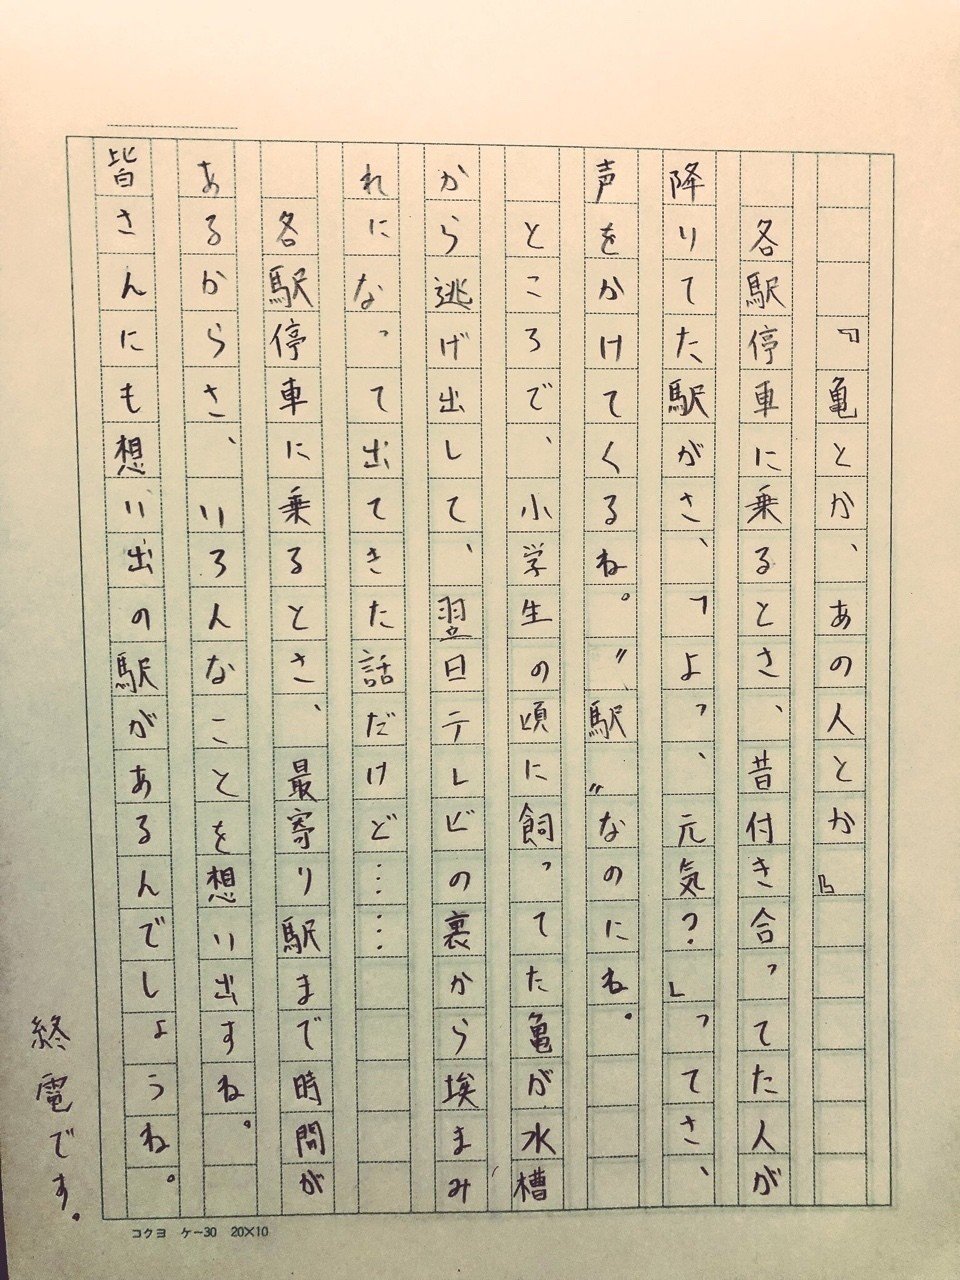 『亀とか、あの人とか』
各駅停車に乗るとさ、昔付き合ってた人が
降りてた駅がさ、「よっ、元気?」ってさ、
声をかけてくるね。〝駅〟なのにね。
ところで、小学生の頃に飼ってた亀が水槽
から逃げ出して、翌日テレビの裏から埃まみ
れになって出てきた話だけど……
各駅停車に乗るとさ、最寄り駅まで時間が
あるからさ、いろんなことを想い出すね。
皆さんにも想い出の駅があるんでしょうね。
終電です。
コクヨ ケー30 20×10